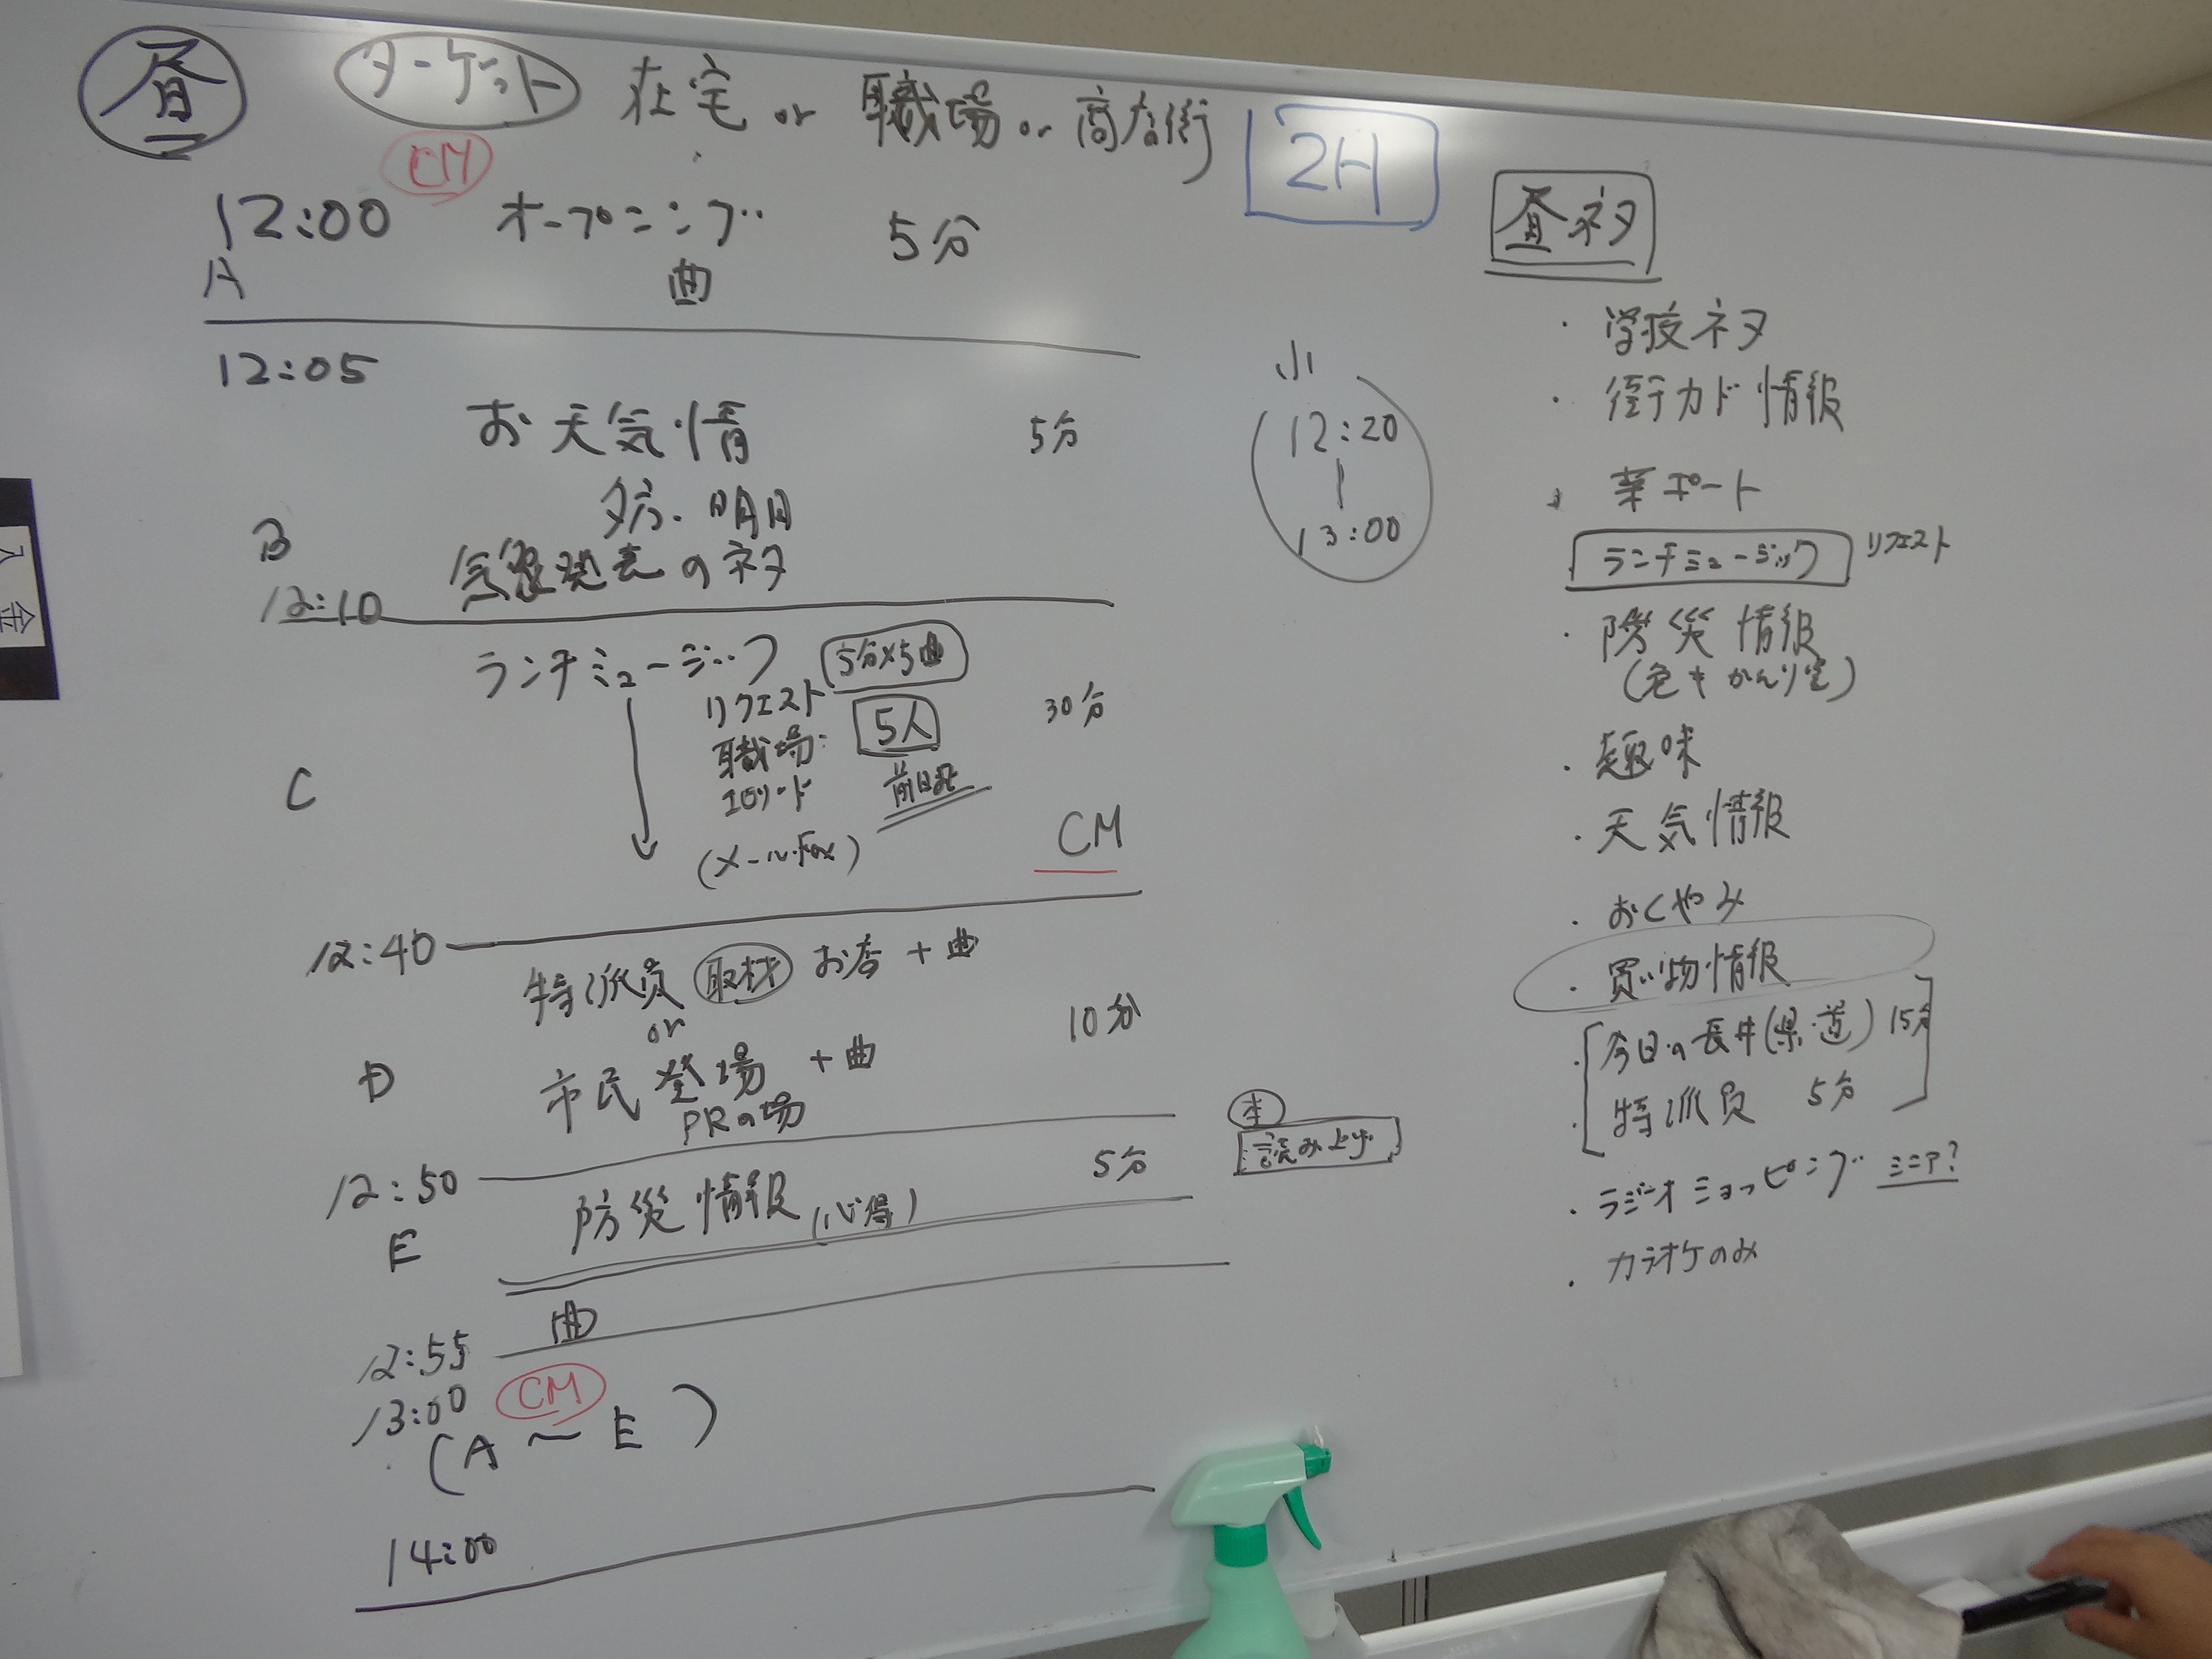 昼 ターゲット 在宅 or 職場 or 商店街
2H
CM
12:00 オープニング 5分
A 曲
12:05
お天気情 5分
夕方・明日
B 気象発表のネタ
12:10
ランチミュージック 5分×5曲
リクエスト 5人 30分
職場
C エピソード 前日迄
(メール・Fax) CM
12:40
特派員 取材 お店 + 曲
or 10分
D 市民登場 + 曲
PRの場
12:50
E 防災情報(心得) 5分
本
読み上げ
曲
12:55
13:00 CM
(A ~ E)
14:00
小
12:20
13:00
昼ネタ
・学校ネタ
・街カド情報
・菜ポート
ランチミュージック リクエスト
・防災情報
・趣味
・天気情報
・おくやみ
・買い物情報
・今日の長井(県・道) 15分
・特派員 5分
・ラジオショッピング ミニFM?
・カラオケのみ
入金